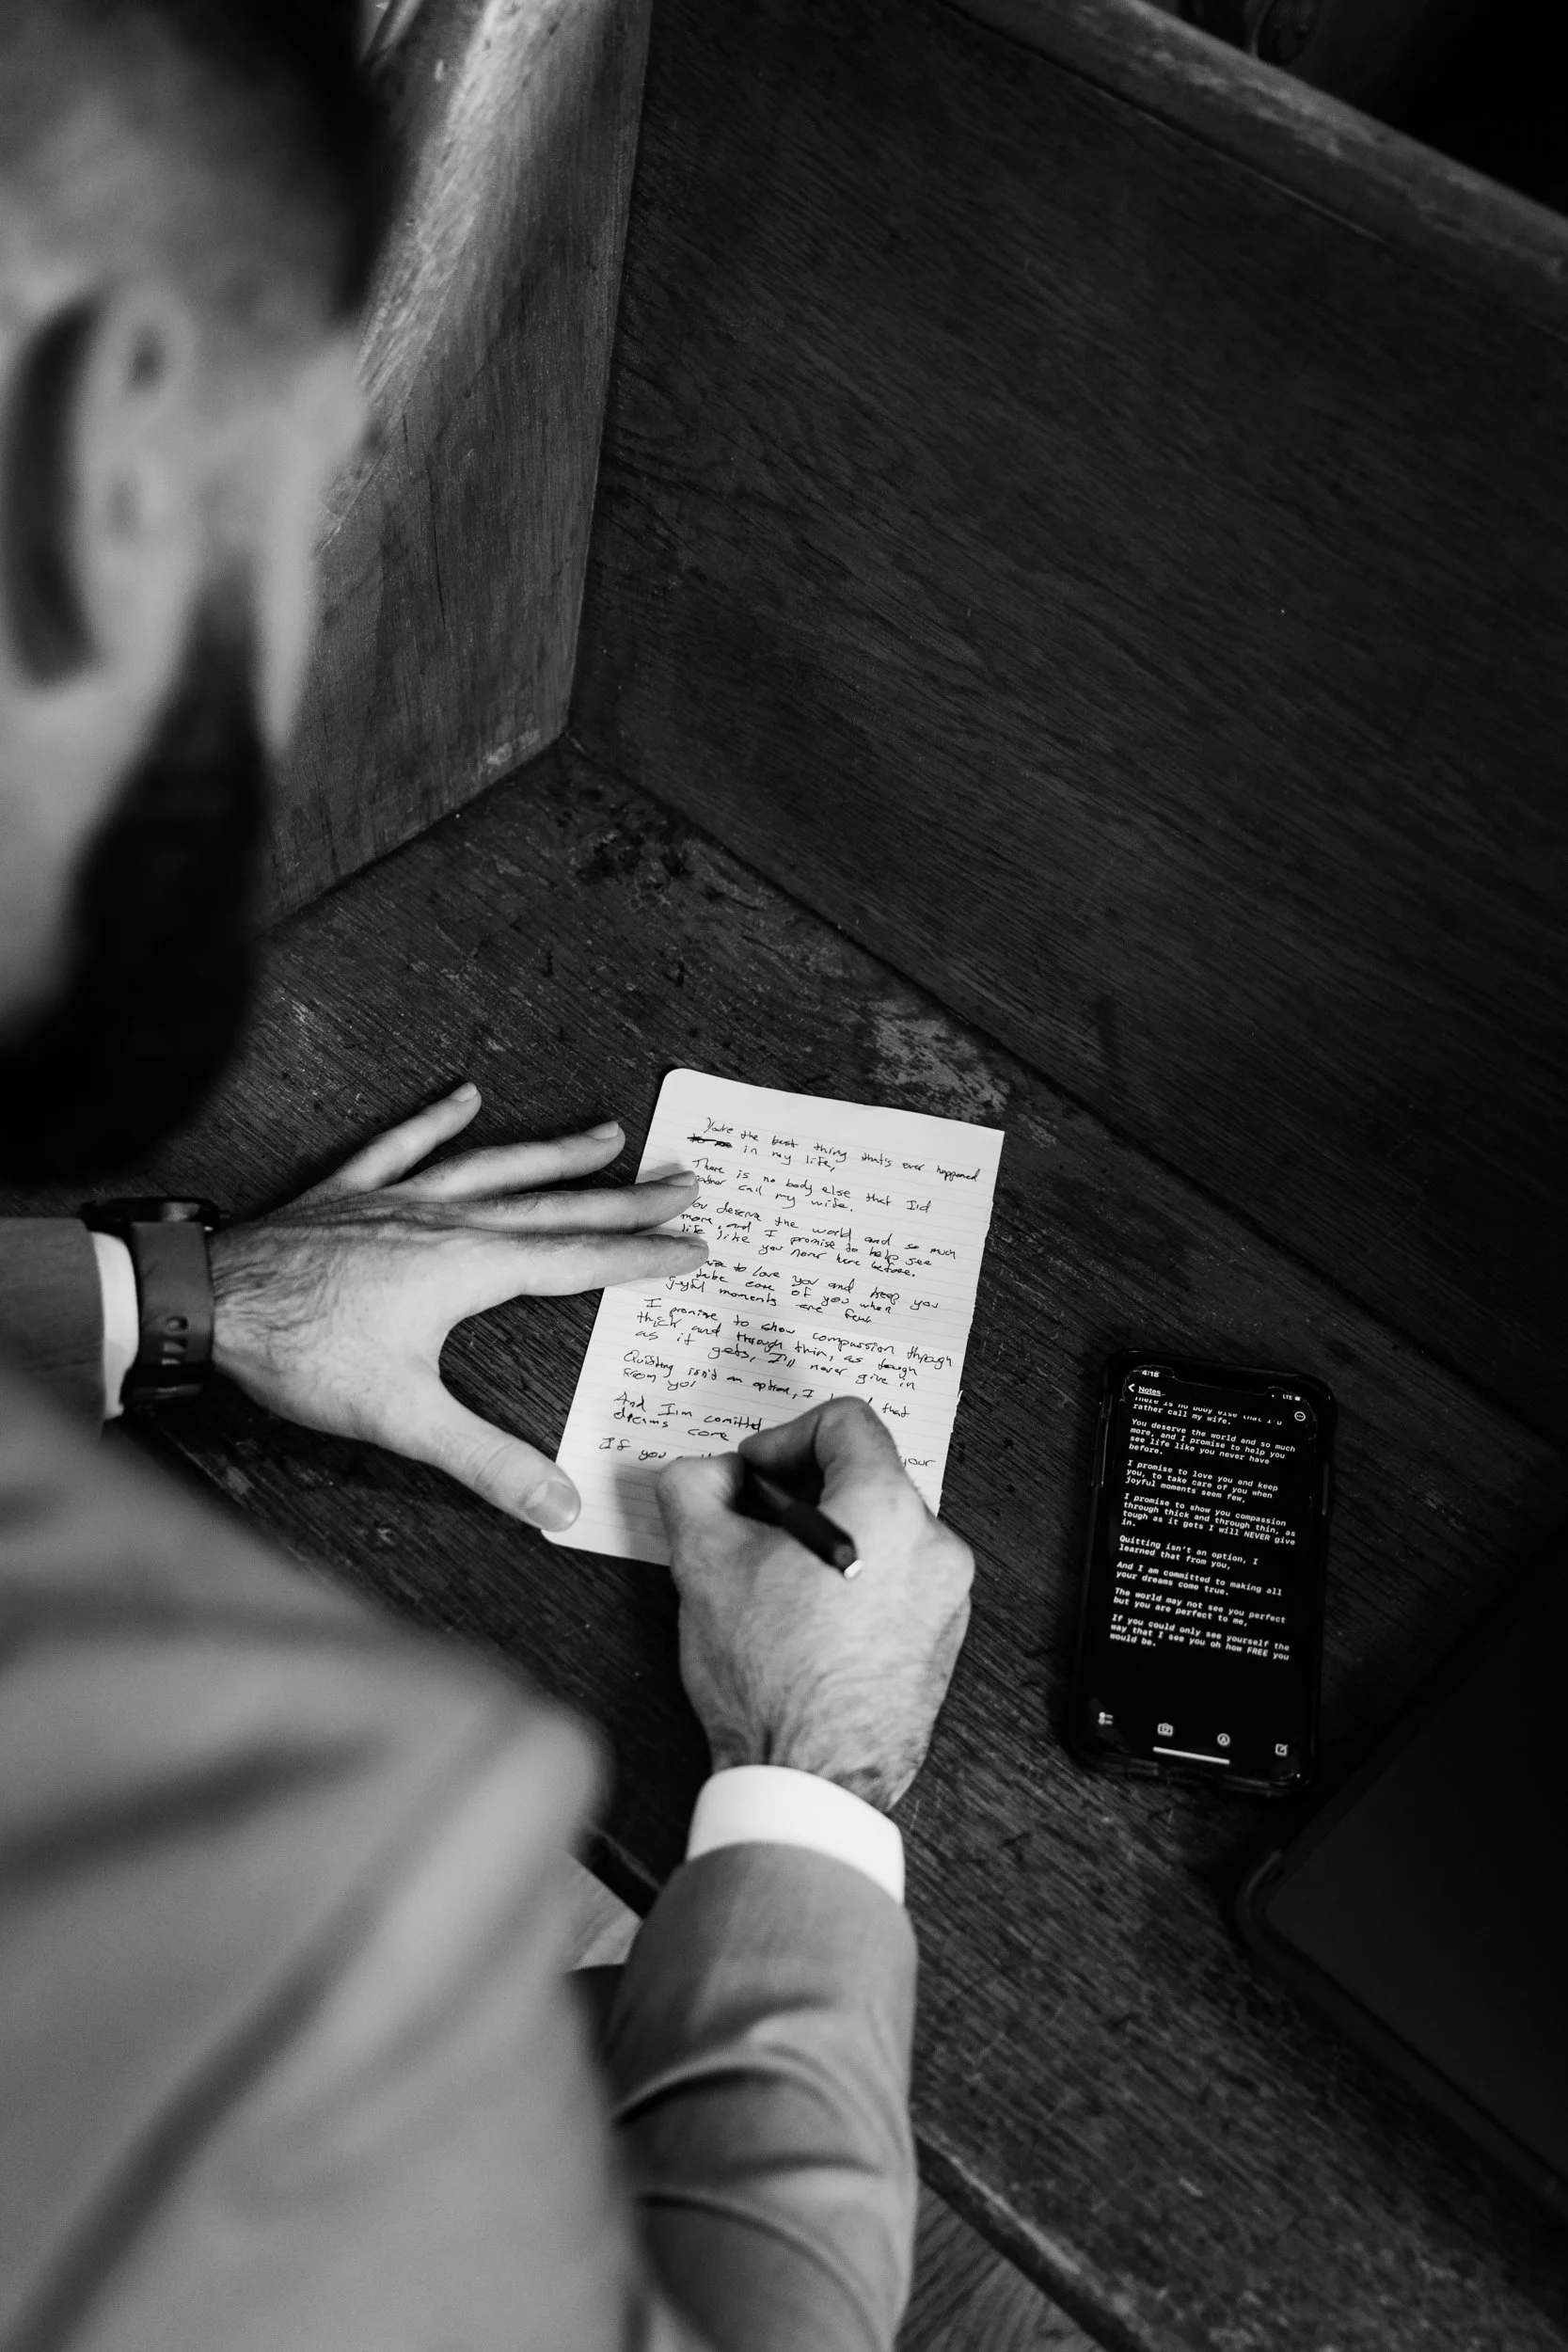 You're the best thing that's ever happened
in my life,
There is no body else that I'd
rather call my wife.
You deserve the world and so much
more, and I promise to help see
life like you never have before.
to love you and keep you
take care of you when
joyful moments are few
I promise to show compassion through
thick and through thin, as tough
as it gets, I'll never give in
Quitting isn't an option, I that
from you
And I'm comitted your
dreams come
If you
4:16
LTE
Notes
There is no body else that I'd
rather call my wife.
You deserve the world and so much
more, and I promise to help you
see life like you never have
before.
I promise to love you and keep
you, to take care of you when
joyful moments seem few,
I promise to show you compassion
through thick and through thin, as
tough as it gets I will NEVER give
in.
Quitting isn't an option, I
learned that from you,
And I am committed to making all
your dreams come true.
The world may not see you perfect
but you are perfect to me,
If you could only see yourself the
way that I see you oh how FREE you
would be.